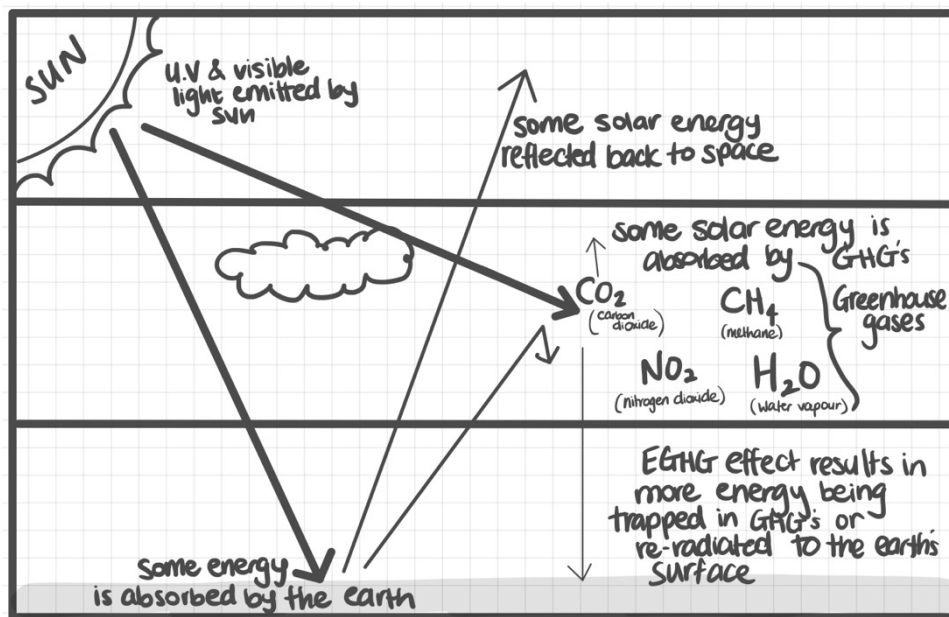 SUN
U.V & visible
light emitted by
sun
some solar energy
reflected back to space
some solar energy is
absorbed by GHG's
CO₂
(carbon
dioxide)
CH₄
(methane)
Greenhouse
gases
NO₂
(nitrogen dioxide)
H₂O
(water vapour)
EGHG effect results in
more energy being
trapped in GHG's or
re-radiated to the earth's
surface
some energy
is absorbed by the earth